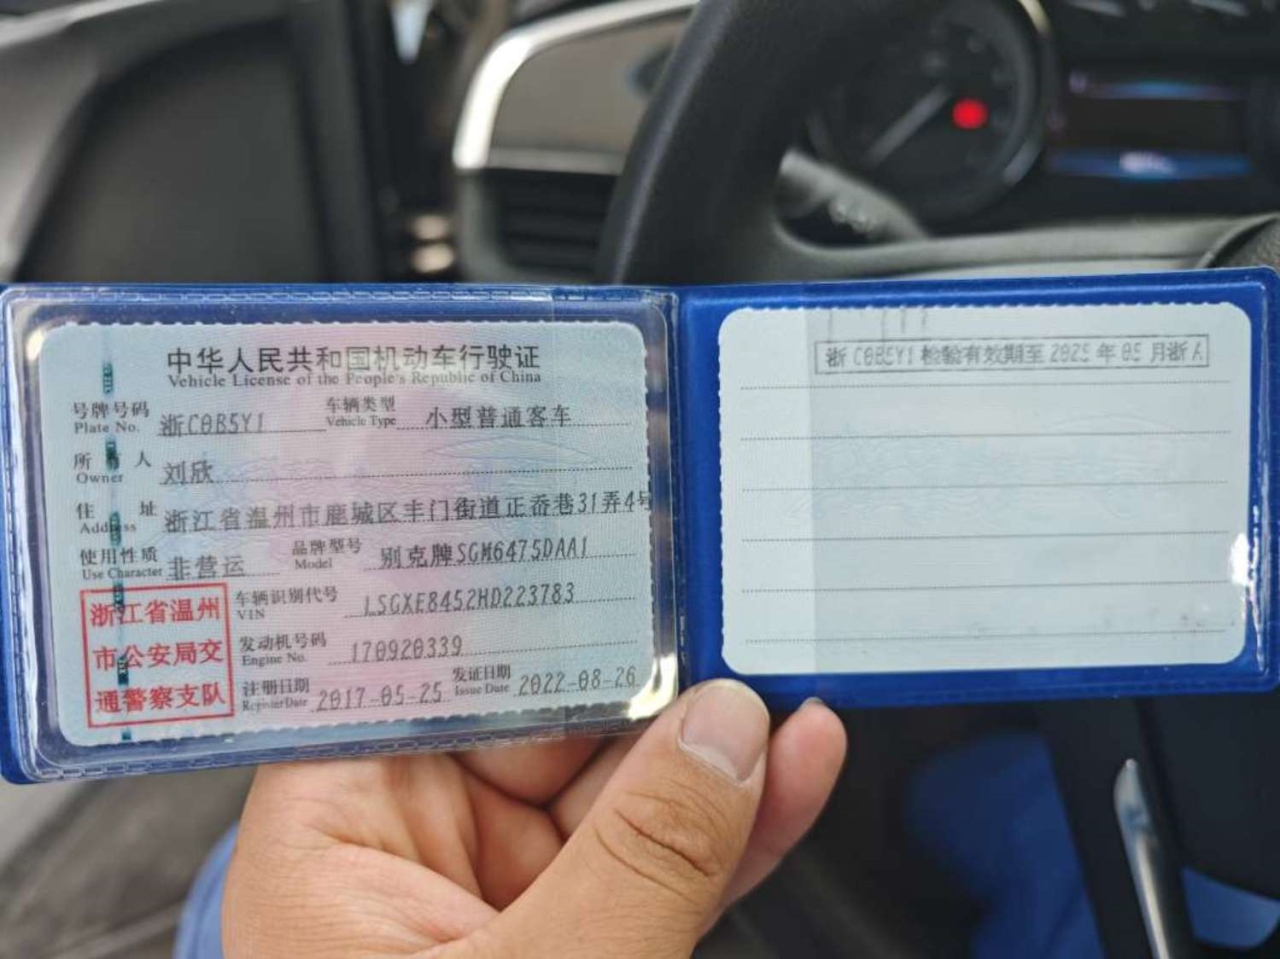 中华人民共和国机动车行驶证
Vehicle License of the People's Republic of China
号牌号码 浙C0B5Y1 车辆类型 小型普通客车
Plate No. Vehicle Type
所 人 刘欣
Owner
住 址 浙江省温州市鹿城区丰门街道正岙巷31弄4号
Address
使用性质 非营运 品牌型号 别克牌SGM6475DAA1
Use Character Model
浙江省温州
市公安局交
通警察支队
车辆识别代号 LSGXE8452HD223783
VIN
发动机号码 170920339
Engine No.
注册日期 2017-05-25 发证日期 2022-08-26
Register Date Issue Date
浙C0B5Y1 检验有效期至 2025 年 05 月浙A